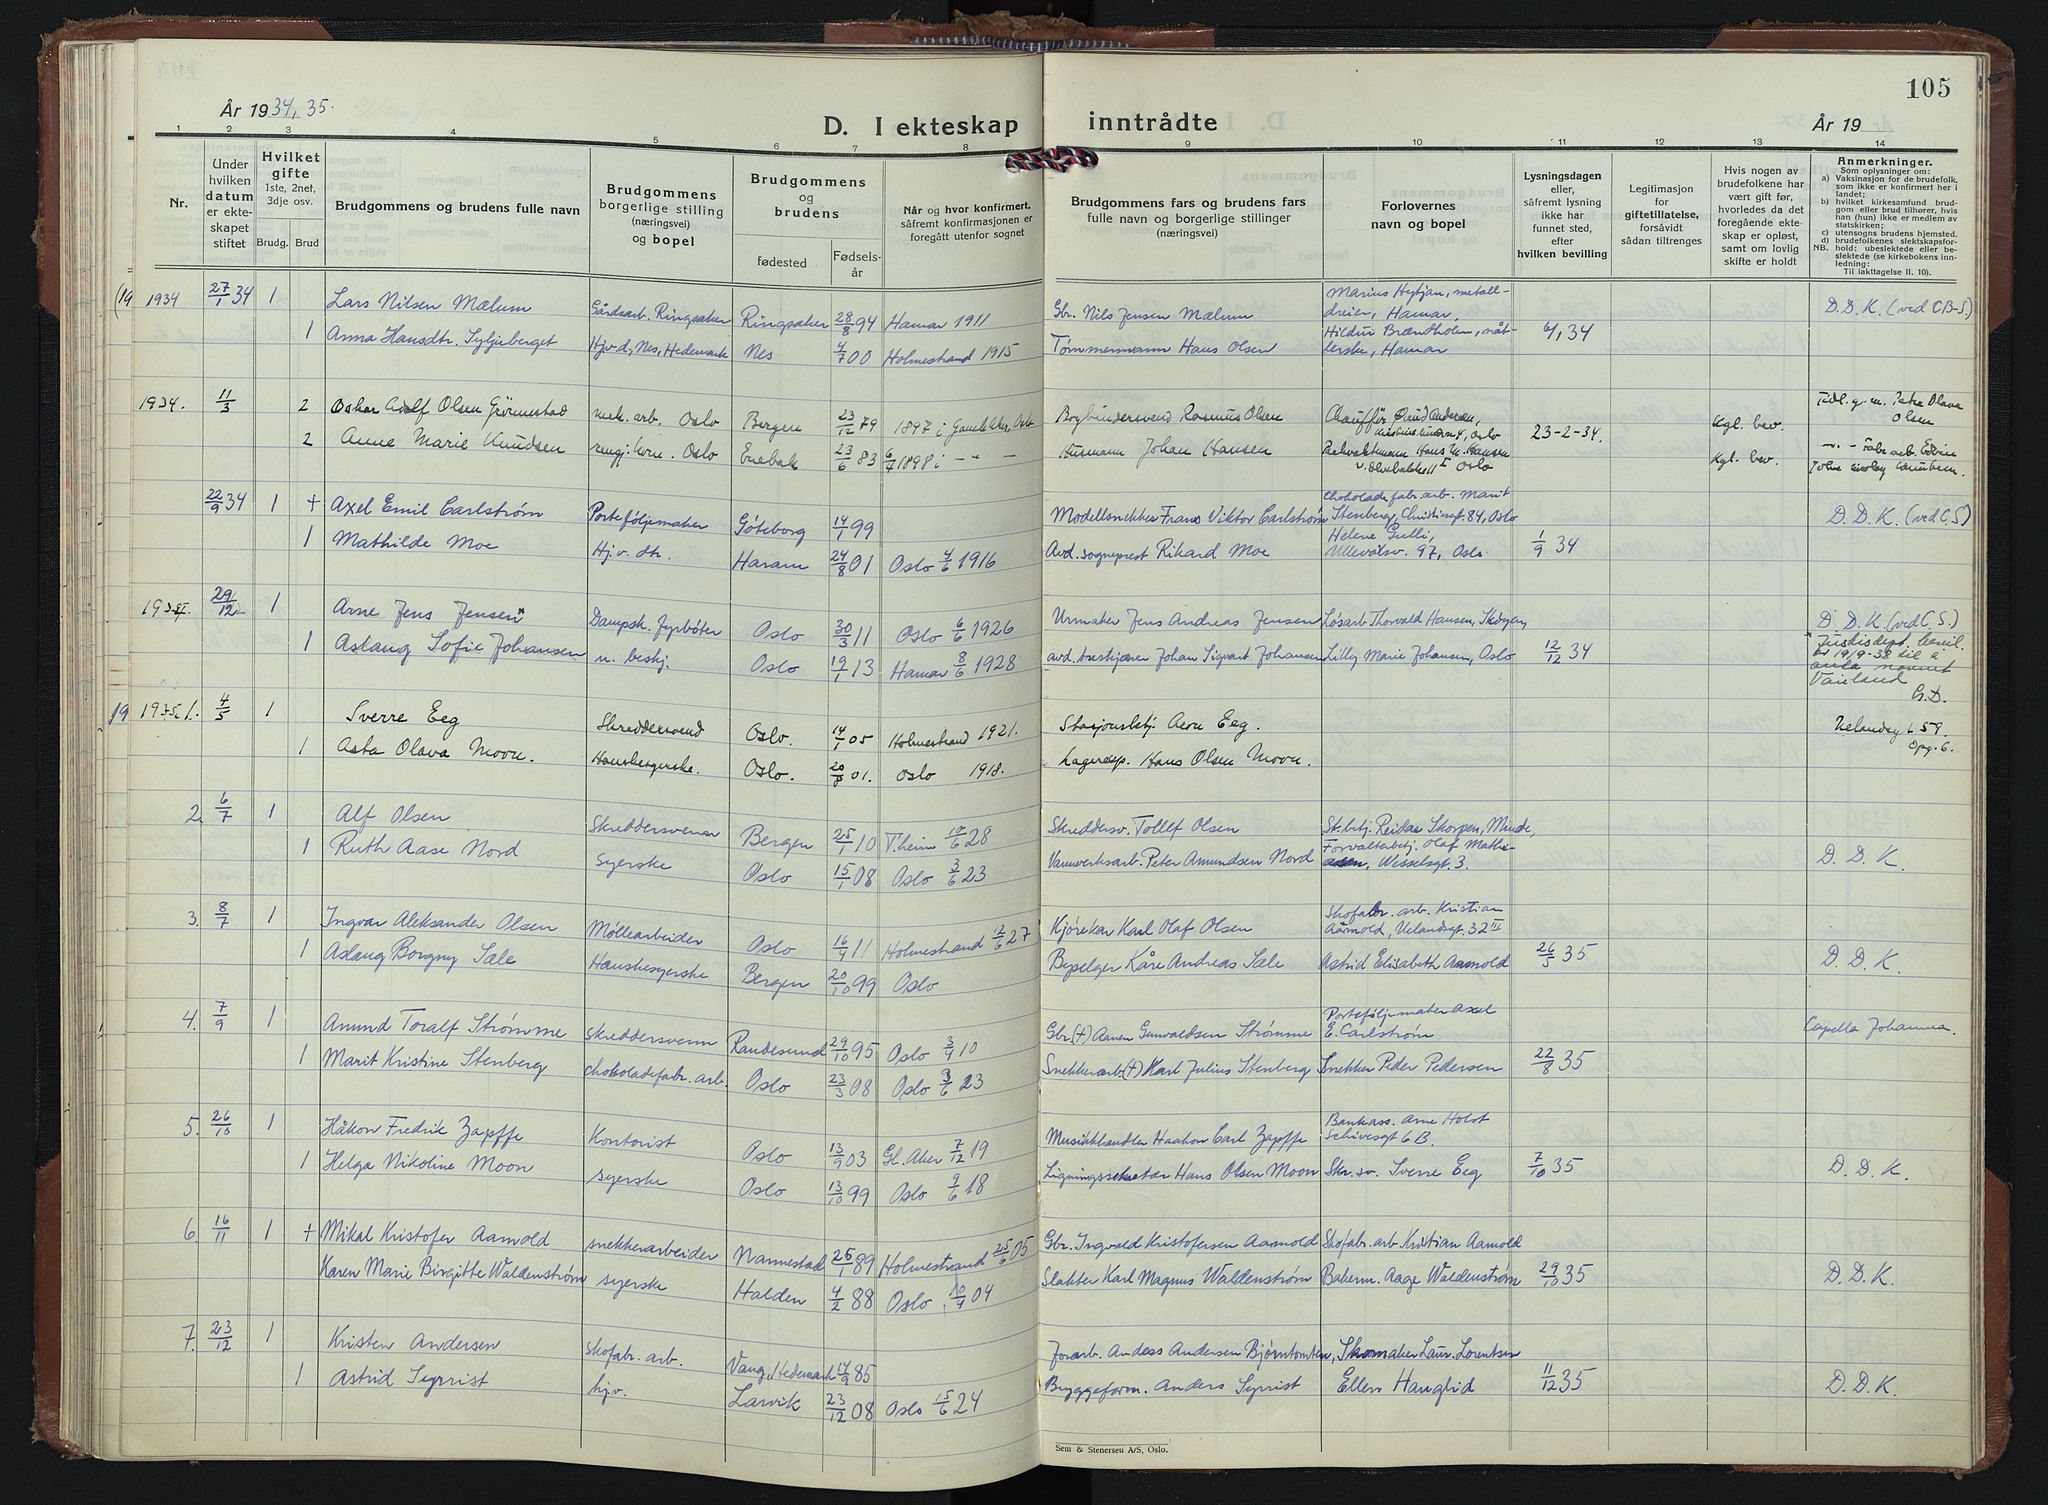 105
År 1934, 35.
D. I ekteskap inntrådte
År 19
1 2 3 4 5 6 7 8 9 10 11 12 13 14
Nr.
Under hvilken datum er ekteskapet stiftet
Hvilket gifte 1ste, 2net, 3dje osv.
Brudg. Brud
Brudgommens og brudens fulle navn
Brudgommens borgerlige stilling (næringsvei) og bopel
Brudgommens og brudens
fødested Fødselsår
Når og hvor konfirmert, såfremt konfirmasjonen er foregått utenfor sognet
Brudgommens fars og brudens fars fulle navn og borgerlige stillinger (næringsvei)
Forlovernes navn og bopel
Lysningsdagen eller, såfremt lysning ikke har funnet sted, efter hvilken bevilling
Legitimasjon for giftetillatelse, forsåvidt sådan tiltrenges
Hvis nogen av brudefolkene har vært gift før, hvorledes da det foregående ekteskap er opløst, samt om lovlig skifte er holdt
Anmerkninger.
Som oplysninger om:
a) Vaksinasjon for de brudefolk, som ikke er konfirmert her i landet;
b) hvilket kirkesamfund brudgom eller brud tilhører, hvis han (hun) ikke er medlem av statskirken;
c) utensogns brudens hjemsted.
d) brudefolkenes slektskapsforhold: ubeslektede eller beslektede (se kirkebokens innledning:
NB. Til iakttagelse II. 10).
1934 27/1 34 1 Lars Nilsen Mælum Gårdsarb. Ringsaker Ringsaker 28/8 94 Hamar 1911 Gbr. Nils Jensen Mælum Marius Hybjan, metalldreier, Hamar, D. D. K. (ved C.B-S.)
1 Anna Hansdtr. Syljuberget Hjv.d, Nes, Hedemark Nes 4/7 00 Holmestrand 1915 Tømmermann Hans Olsen Hildur Brændholen, Hamar 6/1 34
1934. 11/3 2 Oskar Adolf Olsen Grørmestad mek. arb. Oslo Bergen 23/12 79 1897 i Bogbindersvend Rasmus Olsen Chauffør Oslo Kgl. bev. Tidl. g. m. Petra Olava Olsen
2 Anne Marie Knudsen rengj. kone. Oslo Enebak 23/6 83 6/7 1898 i — — Husmann Johan Hansen Hans M. Hansen Oslo 23-2-34. Kgl. bev. —..— Fabr. arb.
22/9 34 1 + Axel Emil Carlstrøm Porteføljemaker Göteborg 14/1 99 Modellsnekker Frans Viktor Carlstrøm Chokoladefabr. arb. Marit Stenberg, Christiesgt 84, Oslo D. D. K. (ved C.S)
1 Mathilde Moe Hjv. dtr. Haram 24/8 01 Oslo 4/6 1916 Avd. sogneprest Rikard Moe Helene Gulli, Ullevålsv. 97, Oslo. 1/9 34
29/12 1 Arne Jens Jensen* Dampsk. fyrbøter Oslo 30/3 11 Oslo 6/6 1926 Urmaker Jens Andreas Jensen Løsarb. Thorvald Hansen, Skøyen, D. D. K. (ved C. S.)
1 Aslaug Sofie Johansen u. beskj. Oslo 19/1 13 Hamar 8/6 1928 avd. Johan Sigvart Johansen Lilly Marie Johansen, Oslo 12/12 34 * Justisdept. bevil. av 19/9-38 til å anta navnet Vaieland G. D.
19 1935. 1. 4/5 1 Sverre Eeg Skreddersvend Oslo. 14/1 05 Holmestrand 1921. Stasjonsbetj. Aern Eeg. Uelandsg t. 59. Opg. 6.
1 Asta Olava Moon. Hansbergerske. Oslo. 20/8 01. Oslo 1918. Lagereksp. Hans Olsen Moon.
2. 6/7 1 Alf Olsen Skreddersvenn Bergen 25/1 10 T.heim 10/6 28 Skreddersv. Tollef Olsen Sk.betj. Reidar Skorpen, Minde,
1 Ruth Aase Nord Syerske Oslo 15/1 08 Oslo 3/6 23 Vannverksarb. Peter Amundsen Nord Forvalterbetj. Olaf Mathiasen, Wesselsgt. 3. D. D. K.
3. 8/7 1 Ingvar Aleksander Olsen Møllearbeider Oslo 16/4 11 Holmestrand 12/6 27 Kjørekar Karl Olaf Olsen Skofabr. arb. Kristian Aamold, Uelandsgt. 32 III
1 Aslaug Borgny Sæle Hanskesyerske Bergen 20/10 99 Oslo Bypelger Kåre Andreas Sæle Astrid Elisabeth Aamold 26/5 35 D. D. K.
4. 7/9 1 Amund Toralf Strømme skreddersvenn Randesund 29/10 95 Oslo 3/4 10 Gbr. (+) Aanen Gunvaldsen Strømme Porteføljemaker Axel E. Carlstrøm Capella Johannea.
1 Marit Kristine Stenberg chokoladefabr. arb. Oslo 23/3 08 Oslo 3/6 23 Snekkerarb (+) Karl Julius Stenberg Snekker Peder Pedersen 22/8 35
5. 26/10 1 Håkon Fredrik Zapffe Kontorist Oslo 13/9 03 Gl. Aker 7/12 19 Musikkhandler Haakon Carl Zapffe Bankass. Arne Holst Schivesgt 6 B.
1 Helga Nikoline Moon syerske Oslo 13/10 99 Oslo 9/6 18 Ligningssekretær Hans Olsen Moon Skr. sv. Sverre Eeg 7/10 35 D. D. K.
6. 16/11 1 + Mikal Kristofer Aamold snekkerarbeider Nannestad 25/1 89 Holmestrand 25/6 05 Gbr. Ingvald Kristofersen Aamold Skofabr. arb. Kristian Aamold
Karen Marie Birgitte Waldenstrøm syerske Halden 4/2 88 Oslo 10/4 04 Slakter Karl Magnus Waldenstrøm Bakerm. Aage Waldenstrøm 29/10 35 D. D. K.
7. 23/12 1 Kristen Andersen skofabr. arb. Vang, Hedemark 14/9 85 Forarb. Anders Andersen Bjørntomten, Skomaker Laur. Lorentsen
1 Astrid Syrrist hjv. Larvik 23/12 08 Oslo 15/6 24 Byggeform. Anders Syrrist Ellen Hauglid 11/12 35 D. D. K.
Sem & Stenersen A/S, Oslo.